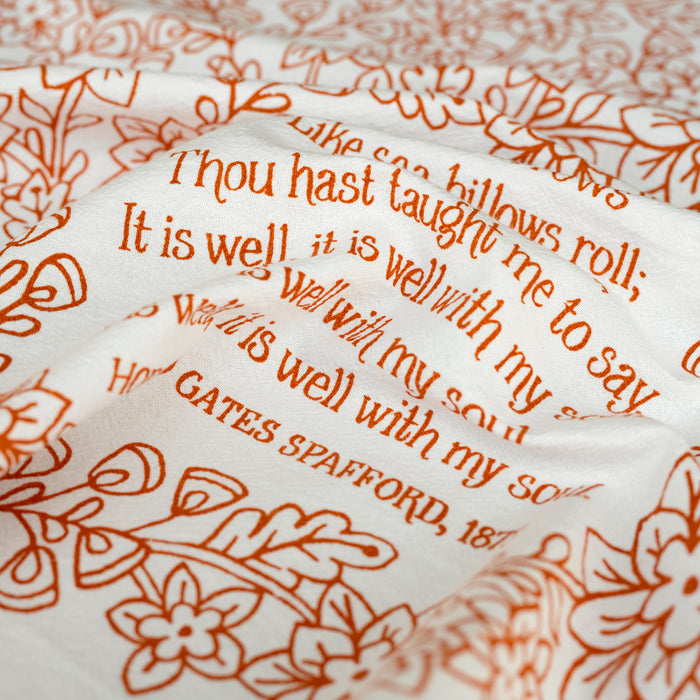 Like sea billows roll;
Thou hast taught me to say,
It is well, it is well with my
is well with my soul
well, it is well with my soul.
GATES SPAFFORD, 187